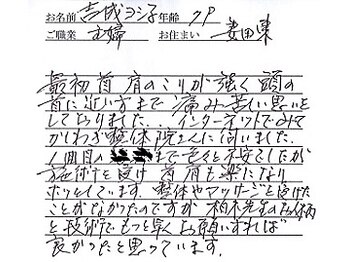 お名前 吉成ヨシ子 年齢
ご職業 主婦 お住まい 妻田東
最初首肩のこりが強く頭の
首に近い方まで痛み苦しい思いを
しておりました...インターネットでみて
かしわぎ整体院さんに伺いました。
1回目の まで色々と不安でしたが
施術を受け首肩も楽になり
ホッとしています。整体やマッサージを受けた
ことがなかったのですが柏木先生のお人柄
と技術でもっと早くお願いすれば
良かったと思っています。